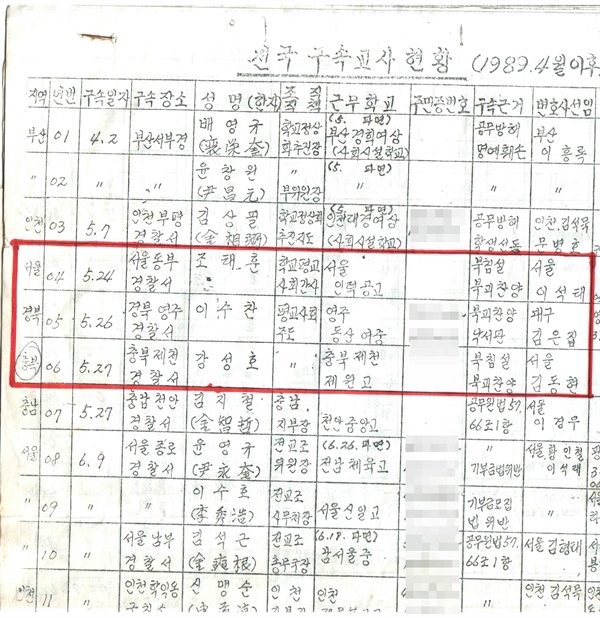 전국 구속교사 현황 (1989. 4월이후
지역 년번 구속일자 구속장소 성명(한자) 조직직책 근무학교 주민증번호 구속근거 변호사선임
부산 01 4.2 부산서부경 배영규 (裵榮奎) 학교정상화추진장 (5. 파면) 부산경희여상 (사회시설학교) 공무방해 명예훼손 부산 이흥록
〃 02 〃 〃 윤창원 (尹昌元) 〃 부위원장 (5. 파면) 〃 〃 〃
인천 03 5.7 인천부평경찰서 김상필 학교정상화추진지도 (5. 파면) 인천대경여상 (사회시설학교) 공무방해 인천.김석목 문병호
서울 04 5.24 서울동부경찰서 조태훈 학교평교사회간사 서울 인덕공고 북침설 북괴찬양 서울 이석태
경북 05 5.26 경북영주경찰서 이수찬 평교사회주도 영주 동산여중 북괴찬양 낙서판 대구 김은집
충북 06 5.27 충북제천경찰서 강성호 〃 충북제천 제원고 북침설 북괴찬양 서울 김동현
충남 07 5.27 충남천안경찰서 김지철 (金智哲) 충남지부장 천안중앙고 공무원법 57. 66조1항 서울 이경우
서울 08 6.9 서울종로경찰서 윤영규 (尹永奎) 전교조위원장 (6.26.파면) 전남체육고 기부금법위반 서울황인철 이석태
〃 09 〃 〃 이수호 (李秀浩) 전교조사무처장 서울신일고 기부금모집법위반 〃
〃 10 〃 서울남부경찰서 김석근 전교조총무국장 (6.18.파면) 강서중 공무원법 57. 66조1항 서울김형태
인천 11 〃 인천학익동 신맹순 인천 인천 인천김석목